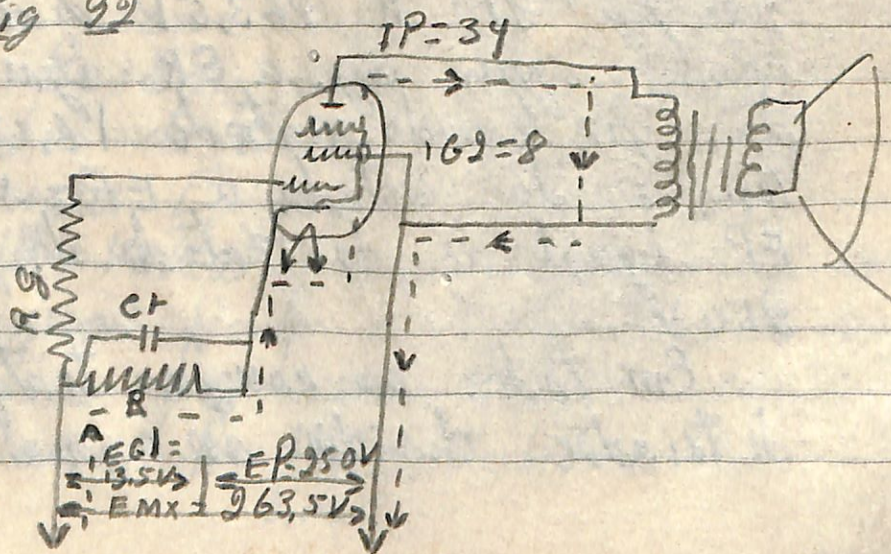 ig 22
IP=34
IG2=8
Rg
Cr
R
EG1=
13.5V
EP=250V
EMX=263,5V